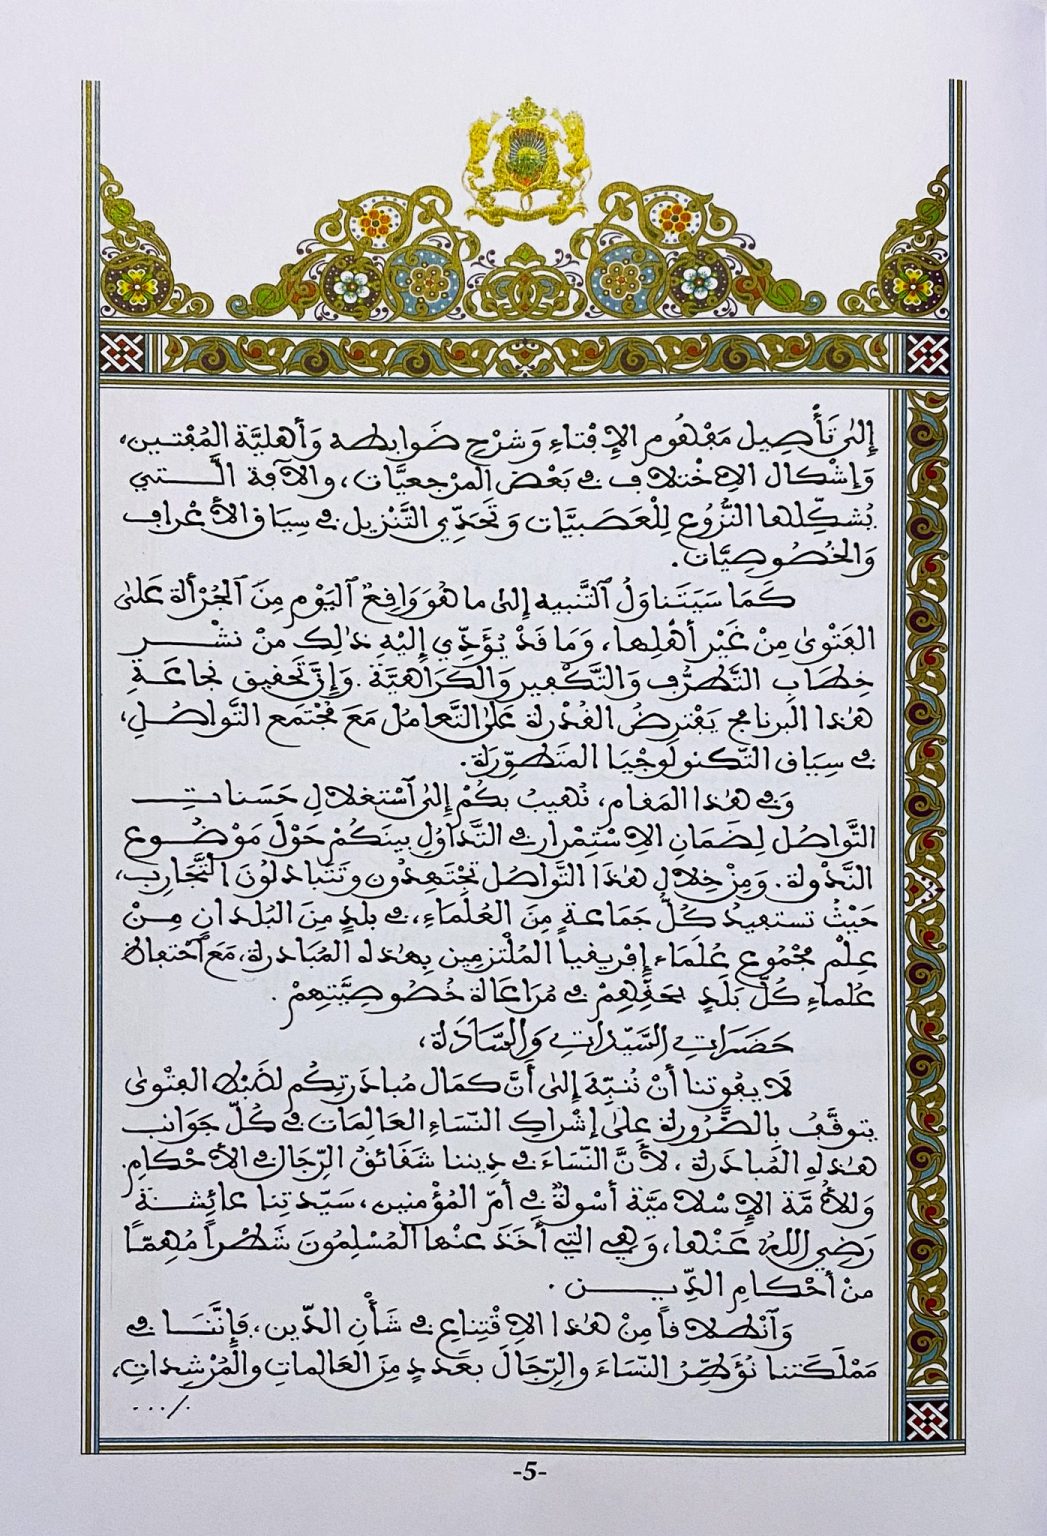 إلى تأصيل مفهوم الإفتاء وشرح ضوابطه وأهلية المفتين،
وإشكال الاختلاف في بعض المرجعيات، والآفة التي
يشكلها النزوع للعصبيات وتحدي التنزيل في سياق الأعراف
والخصوصيات.
كما سيتناول التنبيه إلى ما هو واقع اليوم من الجرأة على
الفتوى من غير أهلها، وما قد يؤدي إليه ذلك من نشر
خطاب التطرف والتكفير والكراهية. وإن تحقيق نجاعة
هذا البرنامج يفترض القدرة على التعامل مع مجتمع التواصل،
في سياق التكنولوجيا المتطورة.
وفي هذا المقام، نهيب بكم إلى استغلال حسنات
التواصل لضمان الاستمرار في التداول بينكم حول موضوع
الندوة. ومن خلال هذا التواصل تجتهدون وتتبادلون التجارب،
حيث تستفيد كل جماعة من العلماء، في بلد من البلدان من
علم مجموع علماء إفريقيا الملتزمين بهذه المبادرة، مع احتفاظ
علماء كل بلد بحقهم في مراعاة خصوصيتهم.
حضرات السيدات والسادة،
لا يفوتنا أن ننبه إلى أن كمال مبادرتكم لضبط الفتوى
يتوقف بالضرورة على إشراك النساء العالمات في كل جوانب
هذه المبادرة، لأن النساء في ديننا شقائق الرجال في الأحكام.
وللأمة الإسلامية أسوة في أم المؤمنين، سيدتنا عائشة
رضي الله عنها، وهي التي أخذ عنها المسلمون شطرا مهما
من أحكام الدين.
وانطلاقا من هذا الاقتناع في شأن الدين، فإننا في
مملكتنا نؤطر النساء والرجال بعدد من العالمات والمرشدات،
/...
-5-